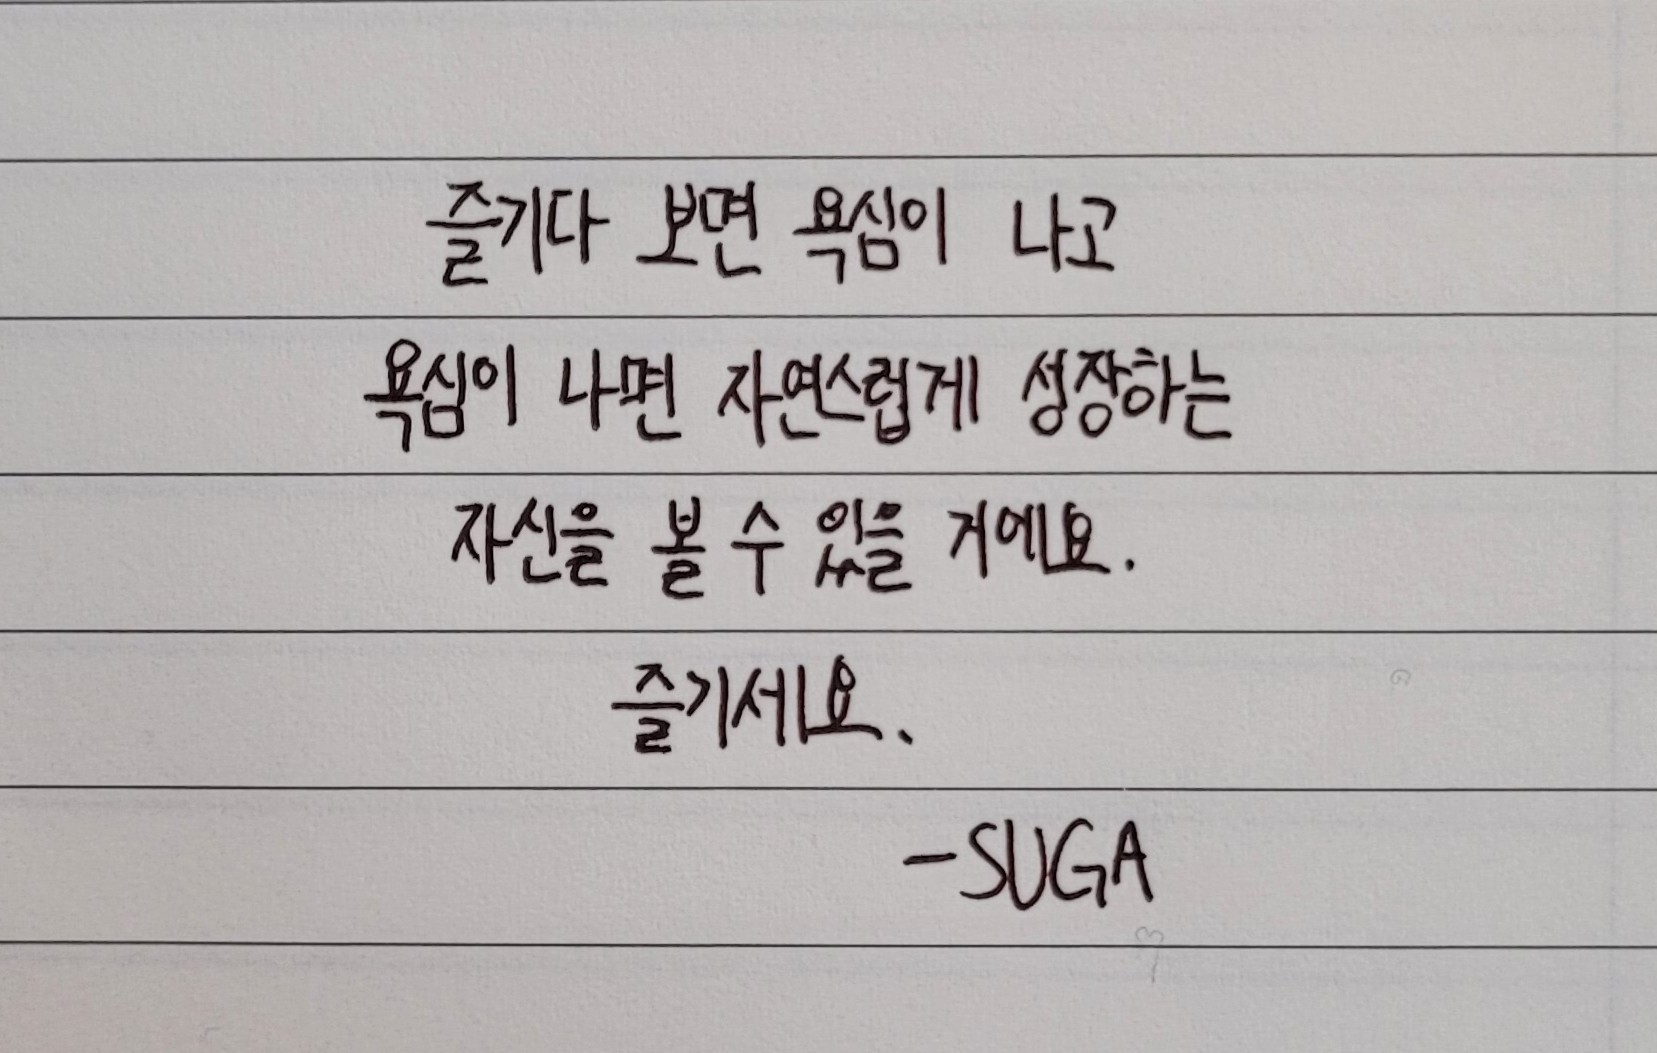 즐기다 보면 욕심이 나고
욕심이 나면 자연스럽게 성장하는
자신을 볼 수 있을 거에요.
즐기세요.
-SUGA